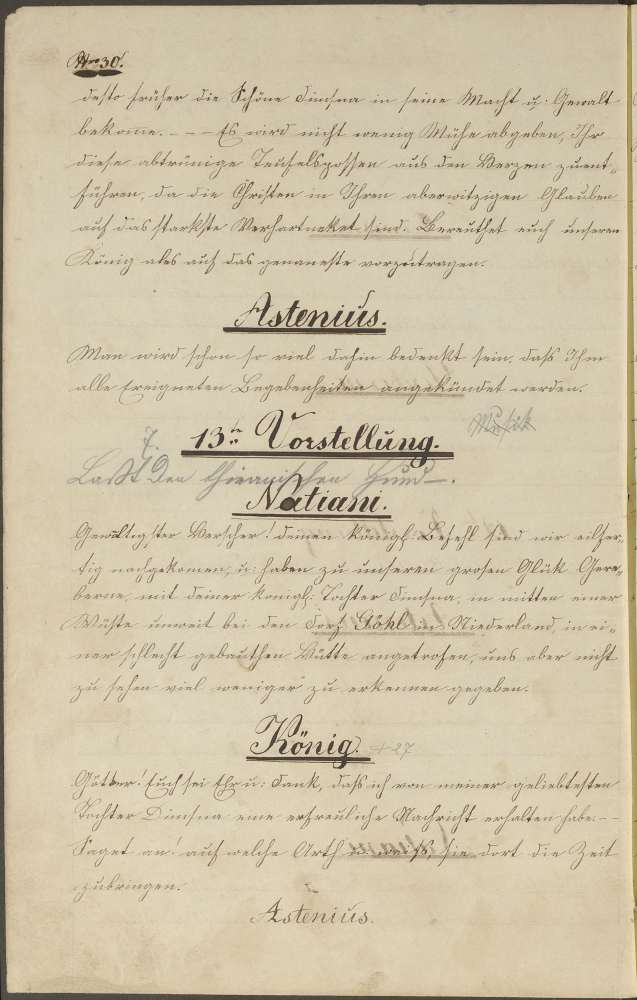 Nro 30.
desto früher die Schöne Dimpna in seine Macht u: Gewalt
bekome. – – – Es wird nicht wenig Mühe abgeben, Ihr
diese abtrünige Teufelspossen aus den Herzen zu ent„
führen, da die Christen in Ihren aberwitzigen Glauben
auf das starkste Verhartneket sind. Bereuthet euch unseren
König ales auf das genaueste vorzutragen.
Astenius.
Man wird schon so viel dahin bedenkt sein, daß Ihm
alle Ereigneten Begebenheiten angekündet werden.
13te Vorstellung.
Musik
7.
Laßt Den Hund
Natiani.
Gewaltigster Herscher! deinen königl: Befehl sind wir eilfer„
tig nachgekomen, u: haben zu unseren grosen Glük Gere„
berne, mit deiner königl: Tochter Dimpna, in mitten einer
Wüste unweit bei den Dorf Göhl in Niederland, in ei„
ner schlecht gebauthen Hütte angetrofen, uns aber nicht
zu sehen viel weniger zu erkennen gegeben.
König. +27
Götter! Euch sei Ehr u: Dank, daß ich von meiner geliebtesten
Tochter Dimpna eine erfreuliche Nachricht erhalten habe. – –
Saget an! auf welche Arth u: weiß, sie dort die Zeit
zubringen.
Astenius.